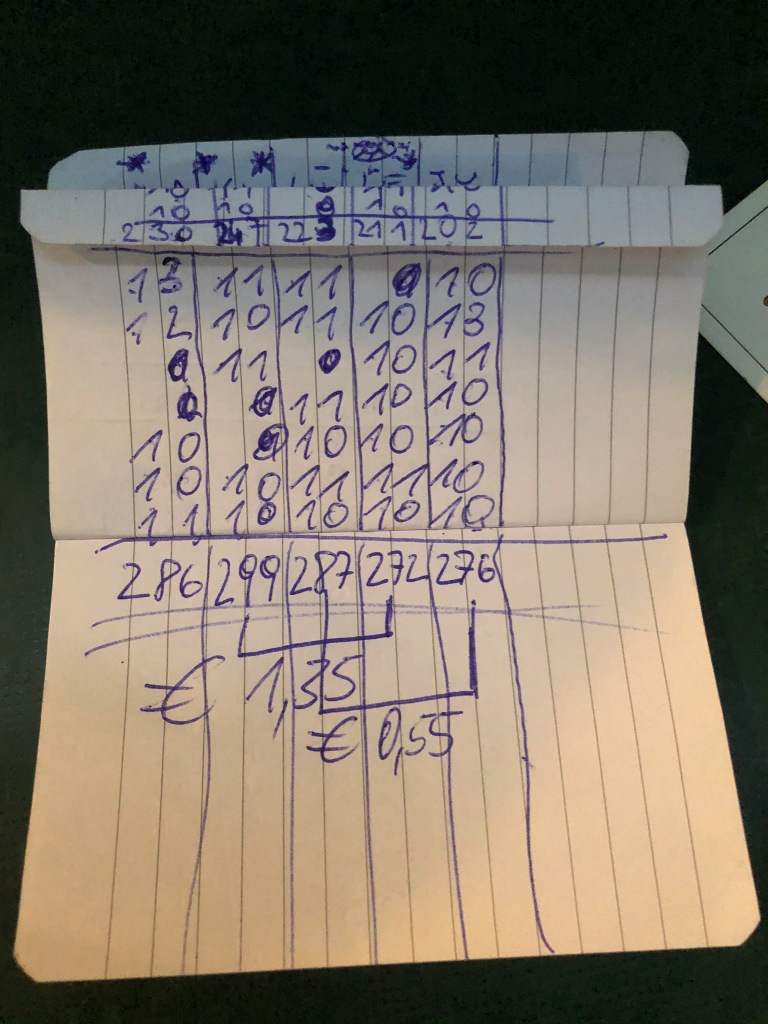 10 10 1 10
230 247 223 211 202
13 11 11 0 10
12 10 11 10 13
0 11 0 10 11
0 0 11 10 10
10 0 10 10 10
10 10 11 11 10
11 10 10 10 10
286 299 287 272 276
€ 1,35
€ 0,55